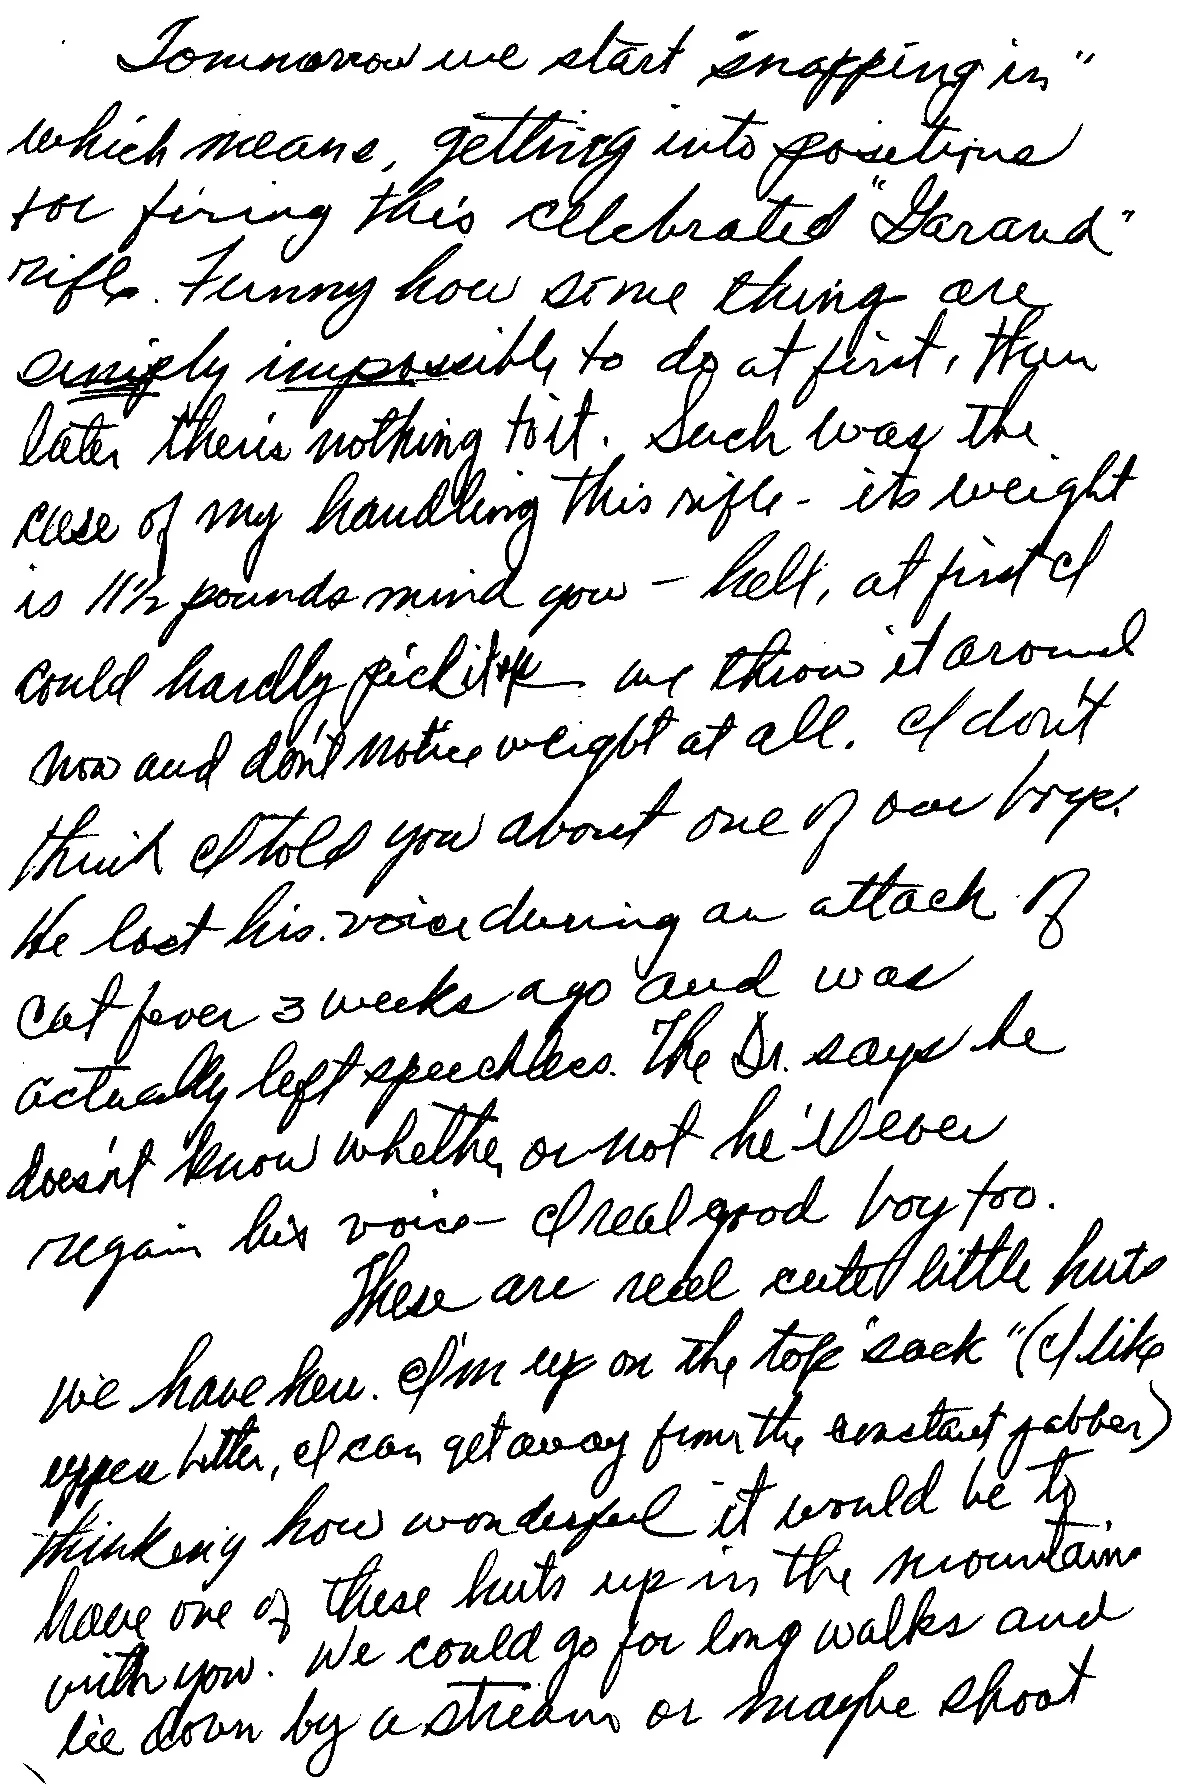 Tommorow we start "snapping in"
which means, getting into positions
for firing this celebrated "Garand"
rifle. Funny how some thing are
simply impossible to do at first, then
later there's nothing to it. Such was the
case of my handling this rifle - its weight
is 11½ pounds mind you - hell, at first I
could hardly pick it up we throw it around
now and don't notice weight at all. I don't
think I told you about one of our boys.
He lost his voice during an attack of
cat fever 3 weeks ago and was
actually left speechless. The Dr. says he
doesn't know whether or not he'll ever
regain his voice - A real good boy too.
These are real cute little huts
we have here. I'm up on the top "sack" (I like
upper better, I can get away from the constant jabber)
thinking how wonderful it would be to
have one of these huts up in the mountains
with you. We could go for long walks and
lie down by a stream or maybe shoot